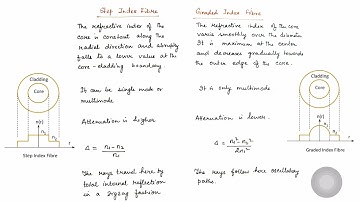 Step Index Fibre
The refractive index of the
core is constant along the
radial direction and abruptly
falls to a lower value at the
core-cladding boundary.
It can be single mode or
multimode
Attenuation is higher
Δ = n₁ - n₂ / n₁
The rays travel here by
total internal reflection
in a zigzag fashion
Graded Index Fibre
The refractive index of the core
varies smoothly over the diameter
It is maximum at the centre
and decreases gradually towards
the outer edge of the core.
It is only multimode
Attenuation is lower.
Δ = n₁² - n₂² / 2n₁²
The rays follow here oscillatory
paths.
Cladding
Core
n(r)
n₁
n₂
r
Step Index Fibre
Cladding
Core
n(r)
n₁
n₂
r
Graded Index Fibre